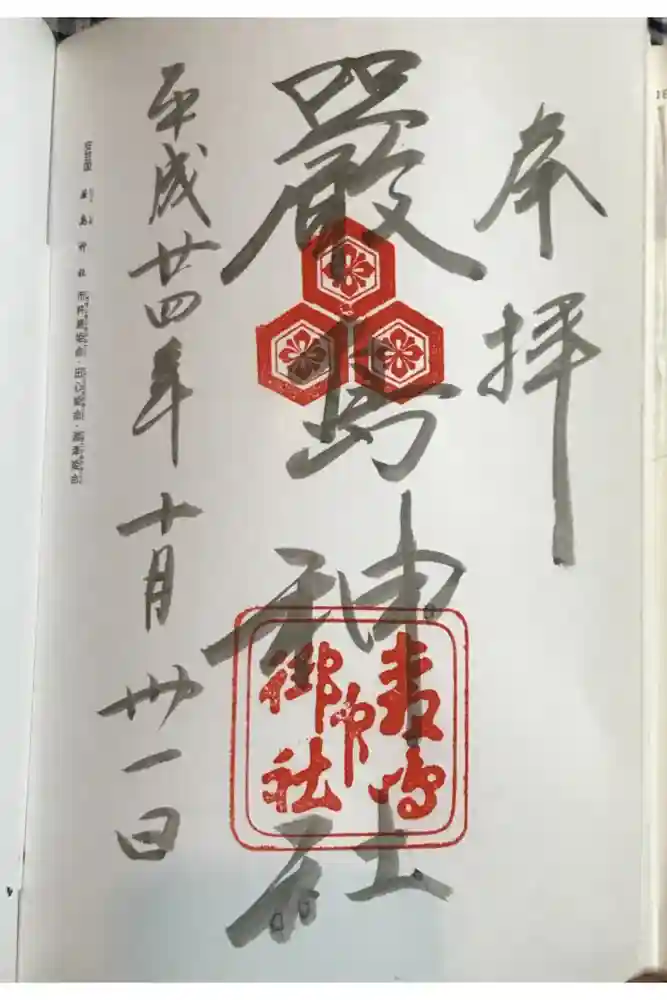 奉拝
嚴島神社
嚴島
御神社
平成廿四年十月卅一日
安芸国 厳島神社 市杵島姫命・田心姫命・湍津姫命